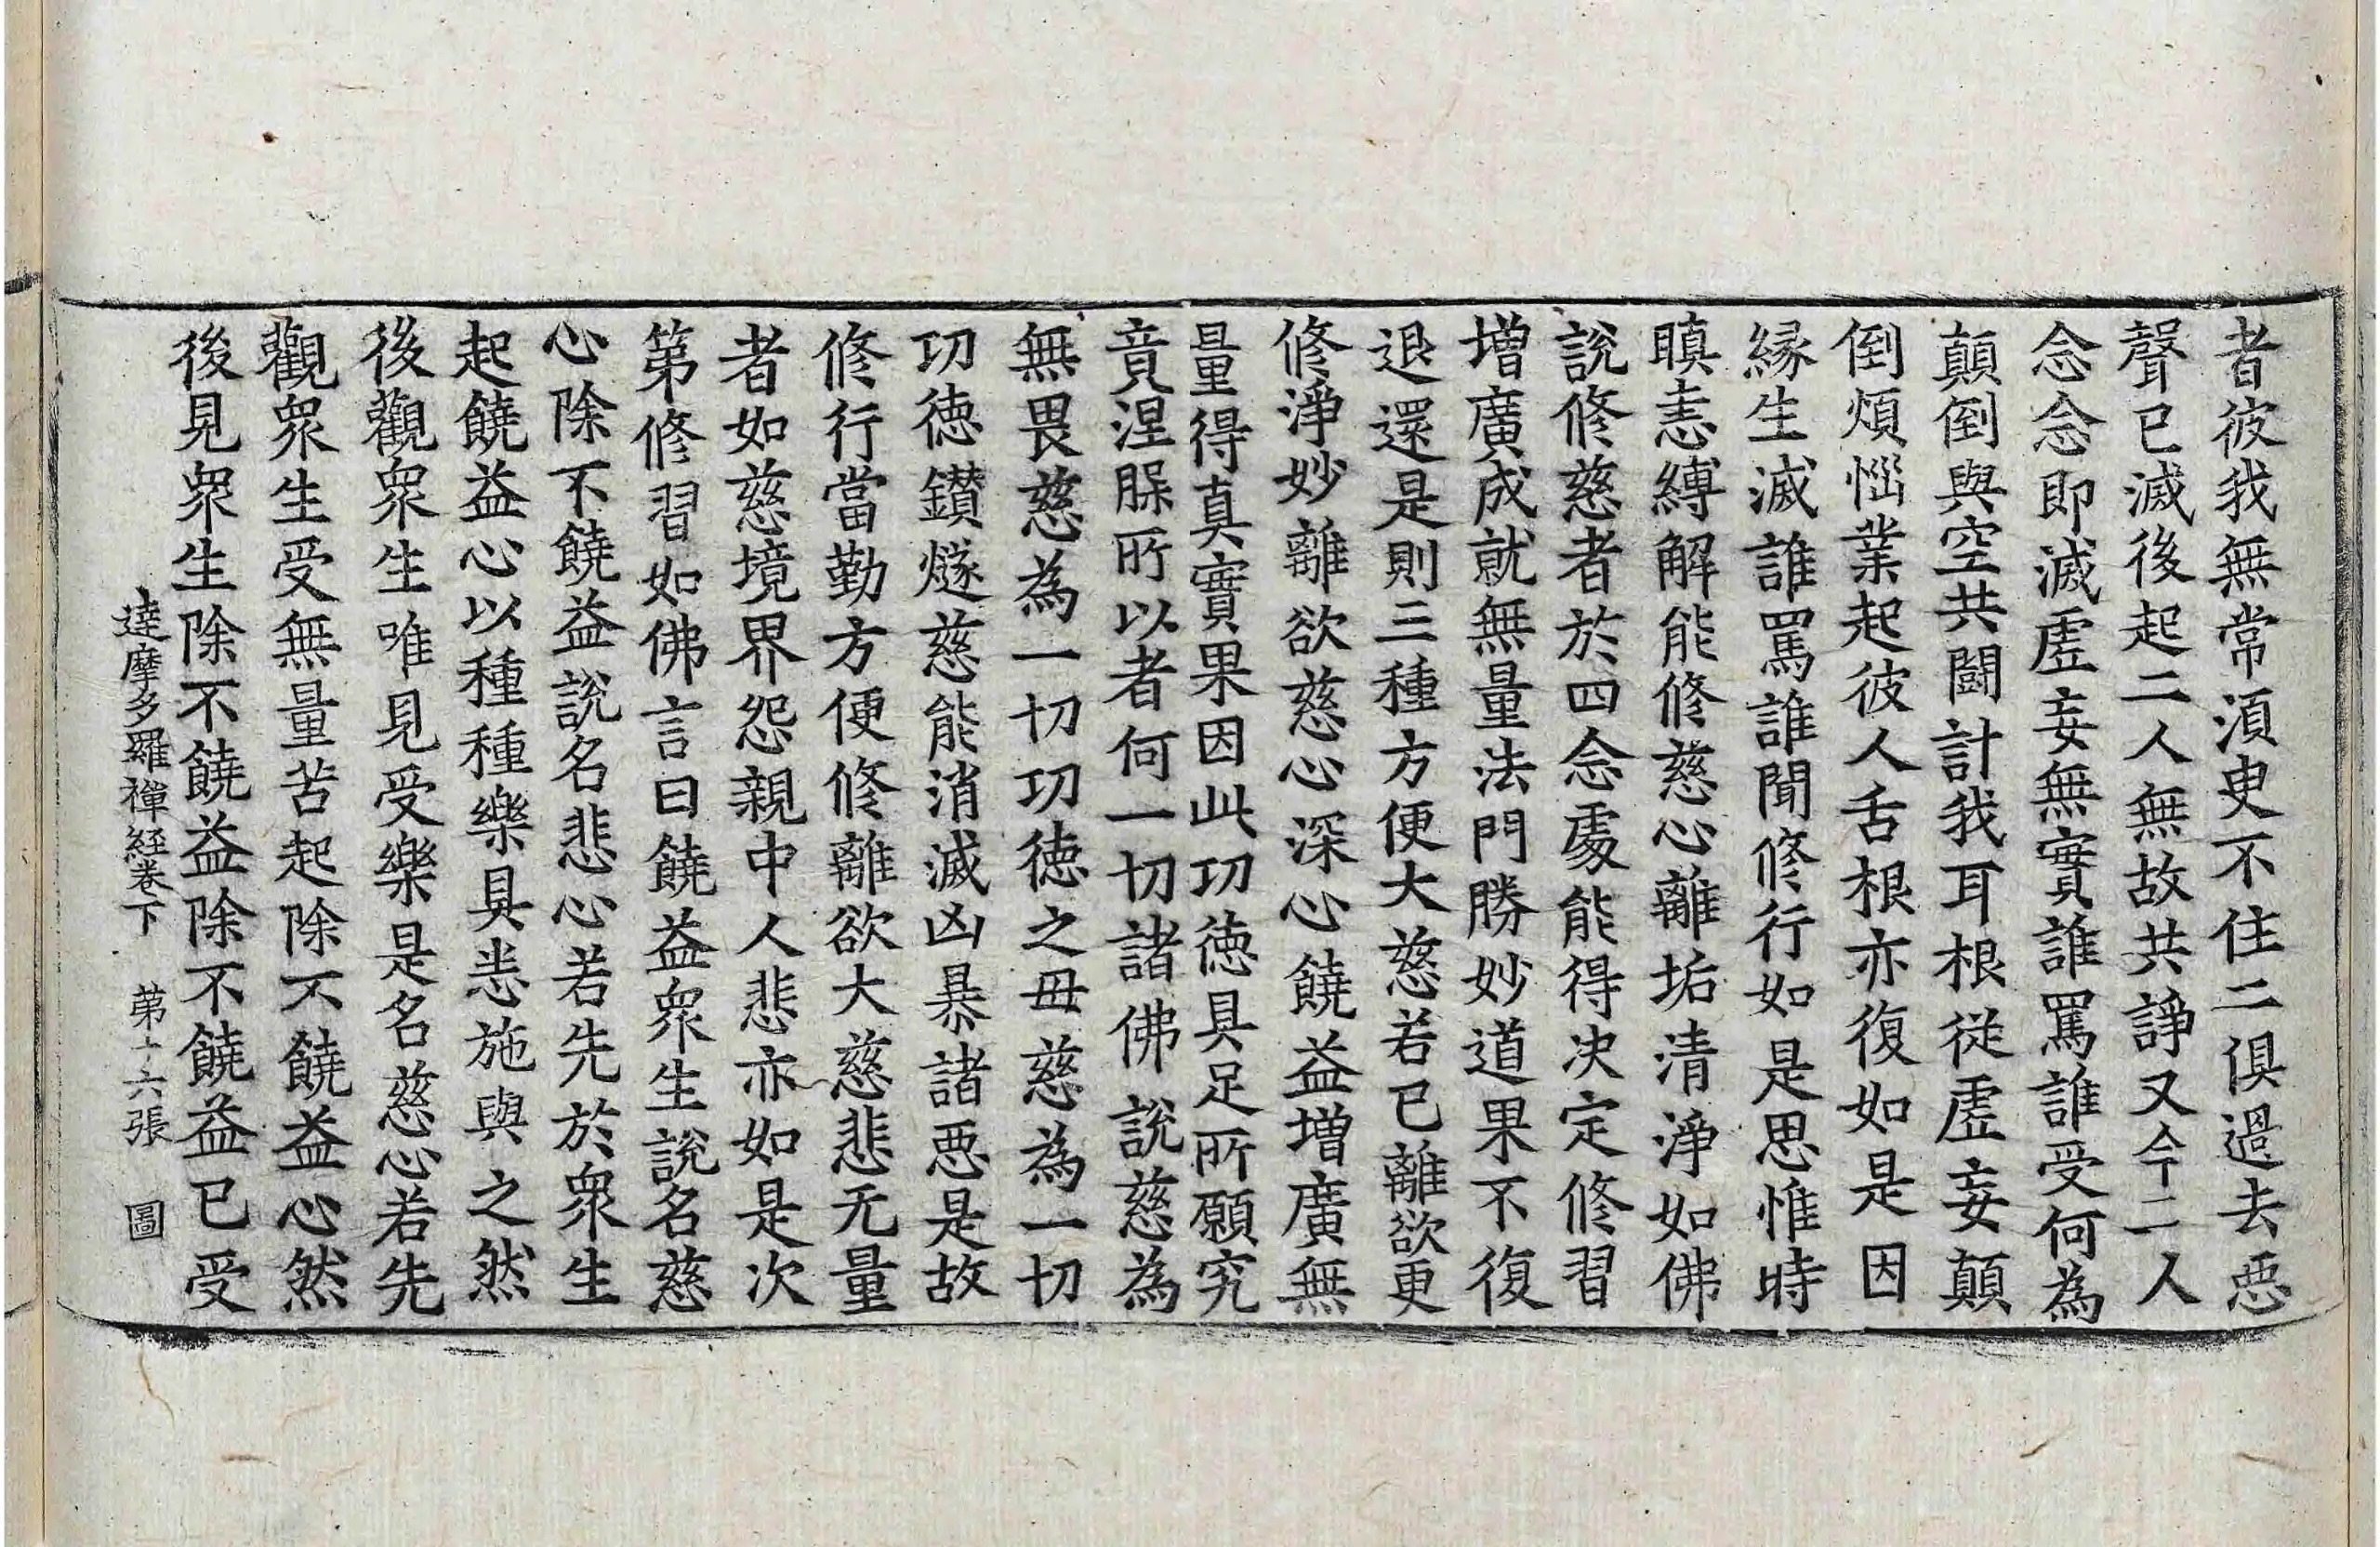 者彼我無常湏臾不住二俱過去惡
聲已滅後起二人無故共諍又今二人
念念即滅虛妄無實誰罵誰受何為
顛倒與空共鬪計我耳根從虛妄顛
倒煩惱業起彼人舌根亦復如是因
緣生滅誰罵誰聞修行如是思惟時
瞋恚縛解能修慈心離垢清淨如佛
說修慈者於四念處能得決定修習
增廣成就無量法門勝妙道果不復
退還是則三種方便大慈若已離欲更
修淨妙離欲慈心深心饒益增廣無
量得真實果因此功德具足所願究
竟涅槃所以者何一切諸佛說慈為
無畏慈為一切功德之母慈為一切
功德鑚燧慈能消滅凶暴諸惡是故
修行當勤方便修離欲大慈悲无量
者如慈境界怨親中人悲亦如是次
第修習如佛言曰饒益眾生說名慈
心除不饒益說名悲心若先於眾生
起饒益心以種種樂具悉施與之然
後觀眾生唯見受樂是名慈心若先
觀眾生受無量苦起除不饒益心然
後見眾生除不饒益除不饒益已受
達摩多羅禪經卷下 第十六張 圖